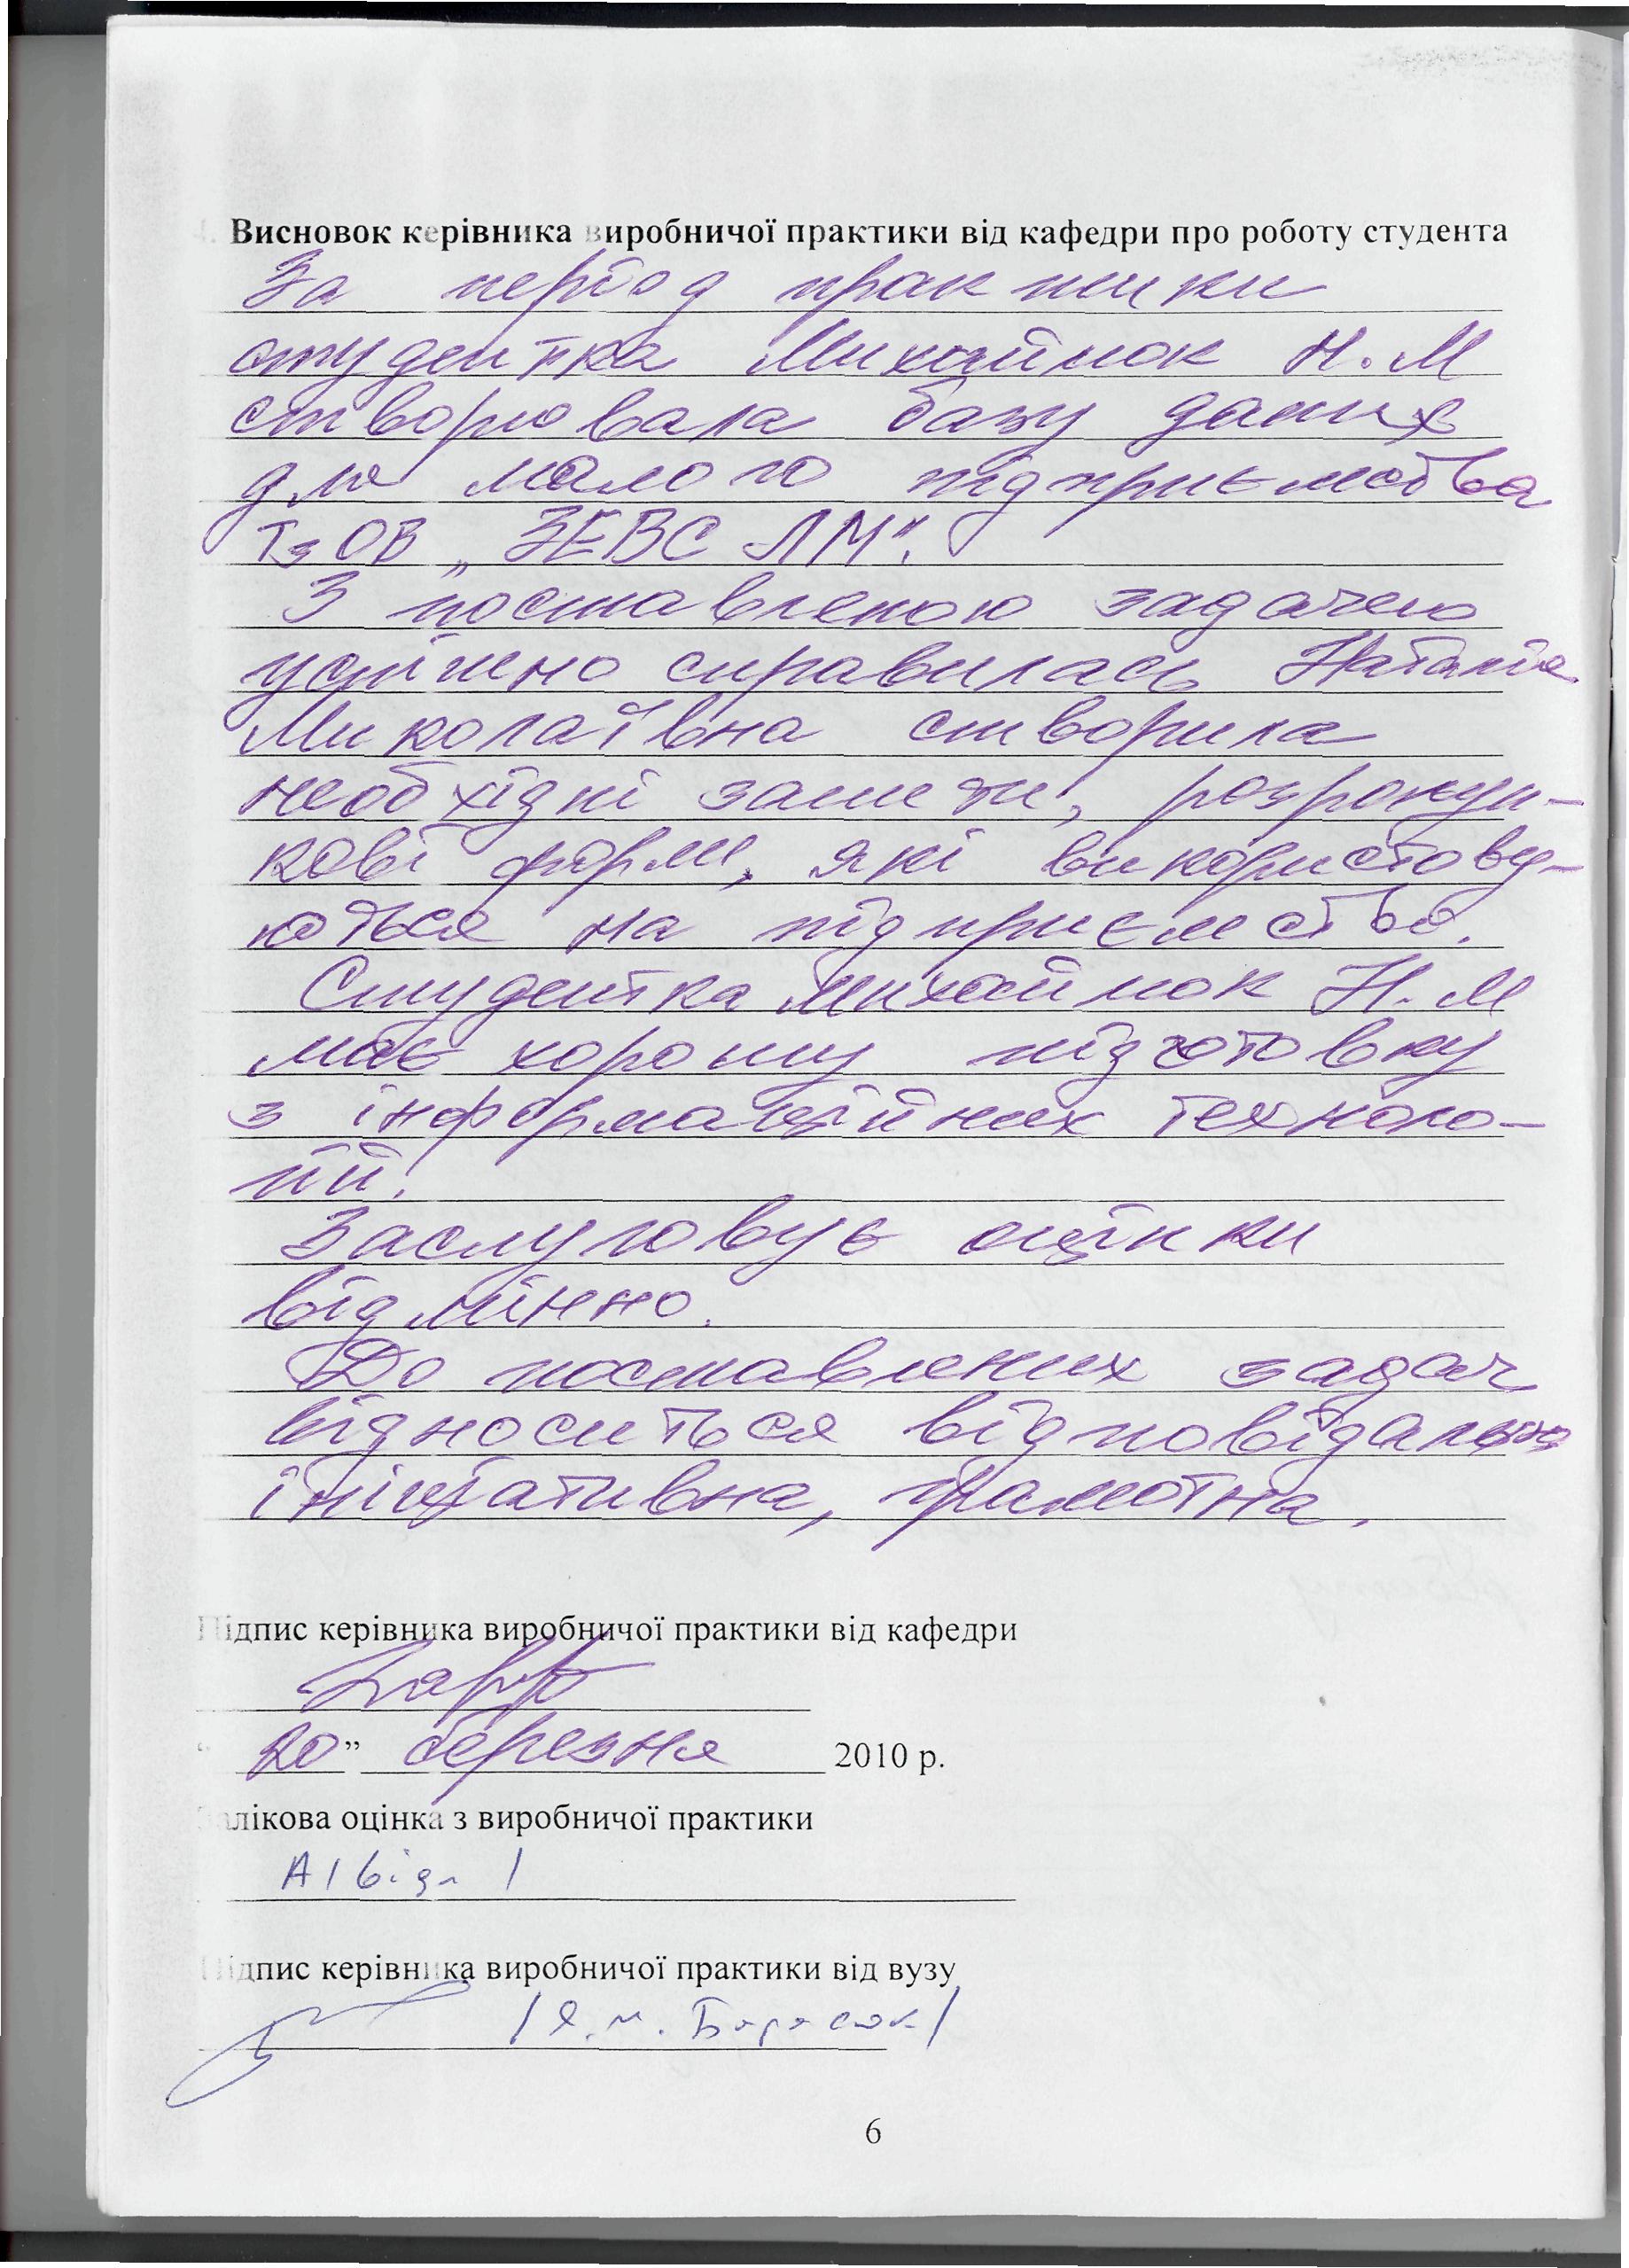 4. Висновок керівника виробничої практики від кафедри про роботу студента
За період практики
студентка Михаймок Н.М
створювала базу даних
для малого підприємства
ТзОВ „ЗЕВС ЛМ".
З поставленою задачею
успішно справилась Наталія
Миколаївна створила
необхідні запити, розрахун-
кові форми, які використову-
ються на підприємстві.
Студентка Михаймок Н.М
має хорошу підготовку
з інформаційних техноло-
гій.
Заслуговує оцінки
відмінно.
До поставлених задач
відноситься відповідально
ініціативна, грамотна.
Підпис керівника виробничої практики від кафедри
“ 20 ” березня 2010 р.
Залікова оцінка з виробничої практики
А / відм /
Підпис керівника виробничої практики від вузу
/ Я.М. /
6